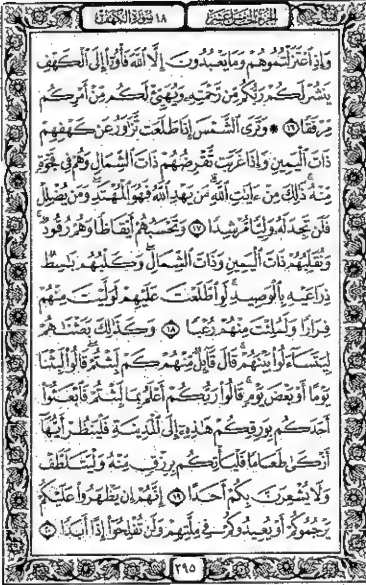 الجزء الخامس عشر
١٨ سورة الكهف
وَإِذِ ٱعْتَزَلْتُمُوهُمْ وَمَا يَعْبُدُونَ إِلَّا ٱللَّهَ فَأْوُۥٓا۟ إِلَى ٱلْكَهْفِ
يَنشُرْ لَكُمْ رَبُّكُم مِّن رَّحْمَتِهِۦ وَيُهَيِّئْ لَكُم مِّنْ أَمْرِكُم
مِّرْفَقًا ١٦ ۞ وَتَرَى ٱلشَّمْسَ إِذَا طَلَعَت تَّزَٰوَرُ عَن كَهْفِهِمْ
ذَاتَ ٱلْيَمِينِ وَإِذَا غَرَبَت تَّقْرِضُهُمْ ذَاتَ ٱلشِّمَالِ وَهُمْ فِى فَجْوَةٍ
مِّنْهُ ۚ ذَٰلِكَ مِنْ ءَايَٰتِ ٱللَّهِ ۗ مَن يَهْدِ ٱللَّهُ فَهُوَ ٱلْمُهْتَدِ ۖ وَمَن يُضْلِلْ
فَلَن تَجِدَ لَهُۥ وَلِيًّا مُّرْشِدًا ١٧ وَتَحْسَبُهُمْ أَيْقَاظًا وَهُمْ رُقُودٌ ۚ
وَنُقَلِّبُهُمْ ذَاتَ ٱلْيَمِينِ وَذَاتَ ٱلشِّمَالِ ۖ وَكَلْبُهُم بَٰسِطٌ
ذِرَاعَيْهِ بِٱلْوَصِيدِ ۚ لَوِ ٱطَّلَعْتَ عَلَيْهِمْ لَوَلَّيْتَ مِنْهُمْ
فِرَارًا وَلَمُلِئْتَ مِنْهُمْ رُعْبًا ١٨ وَكَذَٰلِكَ بَعَثْنَٰهُمْ
لِيَتَسَآءَلُوا۟ بَيْنَهُمْ ۚ قَالَ قَآئِلٌ مِّنْهُمْ كَمْ لَبِثْتُمْ ۖ قَالُوا۟ لَبِثْنَا
يَوْمًا أَوْ بَعْضَ يَوْمٍ ۚ قَالُوا۟ رَبُّكُمْ أَعْلَمُ بِمَا لَبِثْتُمْ فَٱبْعَثُوٓا۟
أَحَدَكُم بِوَرِقِكُمْ هَٰذِهِۦٓ إِلَى ٱلْمَدِينَةِ فَلْيَنظُرْ أَيُّهَآ
أَزْكَىٰ طَعَامًا فَلْيَأْتِكُم بِرِزْقٍ مِّنْهُ وَلْيَتَلَطَّفْ
وَلَا يُشْعِرَنَّ بِكُمْ أَحَدًا ١٩ إِنَّهُمْ إِن يَظْهَرُوا۟ عَلَيْكُمْ
يَرْجُمُوكُمْ أَوْ يُعِيدُوكُمْ فِى مِلَّتِهِمْ وَلَن تُفْلِحُوٓا۟ إِذًا أَبَدًا ٢٠
٢٩٥